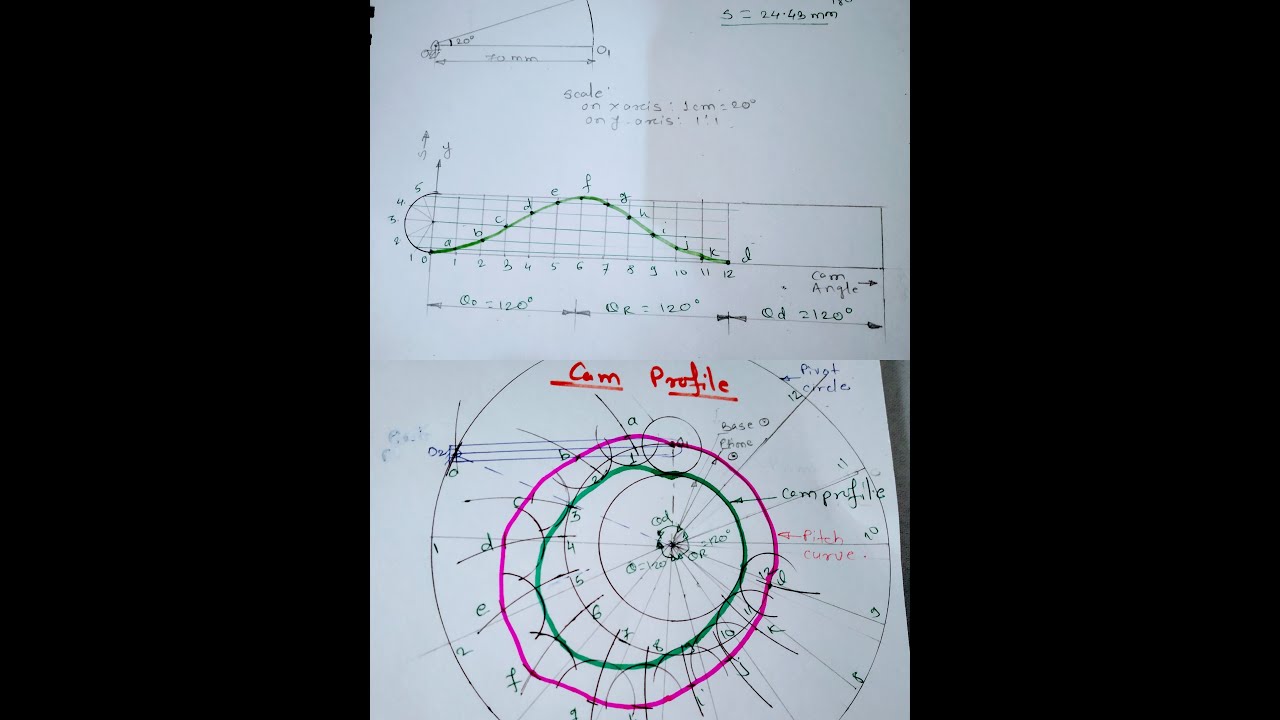 S = 24.43 mm
20°
O1
70 mm
Scale:
on x axis : 1cm = 20°
on y-axis : 1:1
y
5
4
3
2
1
0
a
b
c
d
e
f
g
h
i
j
k
d
1 2 3 4 5 6 7 8 9 10 11 12
Cam
Angle
θo = 120°
θR = 120°
θd = 120°
Cam Profile
Pivot
circle
12
a
Base
b
1
2
O2
0
11
c
3
cam profile
d
1
4
θd
=120°
10
Pitch
curve
θ=120°
θR
5
12
l
e
6
11
9
2
7
10
k
8
f
j
8
i
g